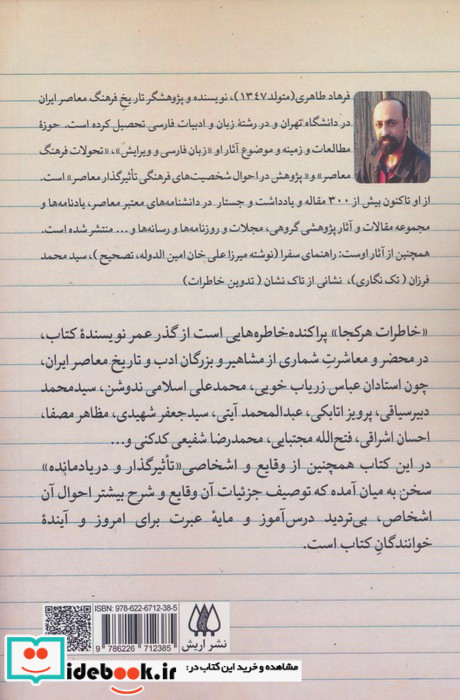 فرهاد طاهری (متولد ۱۳۴۷)، نویسنده و پژوهشگر تاریخ فرهنگ معاصر ایران
در دانشگاه تهران و در رشتهٔ زبان و ادبیات فارسی تحصیل کرده است. حوزهٔ
مطالعات و زمینه و موضوع آثار او «زبان فارسی و ویرایش»، «تحولات فرهنگ
معاصر» و «پژوهش در احوال شخصیت‌های فرهنگی تأثیرگذار معاصر» است.
از او تاکنون بیش از ۳۰۰ مقاله و یادداشت و جستار در دانشنامه‌های معتبر معاصر، یادنامه‌ها و
مجموعه مقالات و آثار پژوهشی گروهی، مجلات و روزنامه‌ها و رسانه‌ها و ... منتشر شده است.
همچنین از آثار اوست: راهنمای سفرا (نوشته میرزا علی خان امین الدوله، تصحیح )، سید محمد
فرزان ( تک نگاری)، نشانی از تاک نشان ( تدوین خاطرات)
«خاطرات هرکجا» پراکنده‌خاطره‌هایی است از گذر عمر نویسندهٔ کتاب،
در محضر و معاشرتِ شماری از مشاهیر و بزرگان ادب و تاریخ معاصر ایران،
چون استادان عباس زریاب خویی، محمدعلی اسلامی ندوشن، سیدمحمد
دبیرسیاقی، پرویز اتابکی، عبدالمحمد آیتی، سیدجعفر شهیدی، مظاهر مصفا،
احسان اشراقی، فتح‌الله مجتبایی، محمدرضا شفیعی کدکنی و...
در این کتاب همچنین از وقایع و اشخاصی «تأثیرگذار و دریادمانده»
سخن به میان آمده که توصیف جزئیات آن وقایع و شرح بیشتر احوال آن
اشخاص، بی‌تردید درس‌آموز و مایهٔ عبرت برای امروز و آیندهٔ
خوانندگانِ کتاب است.
ISBN: 978-622-6712-38-5
9 786226 712385
نشر آریش
مشاهده و خرید این کتاب در:
iidebook.ir